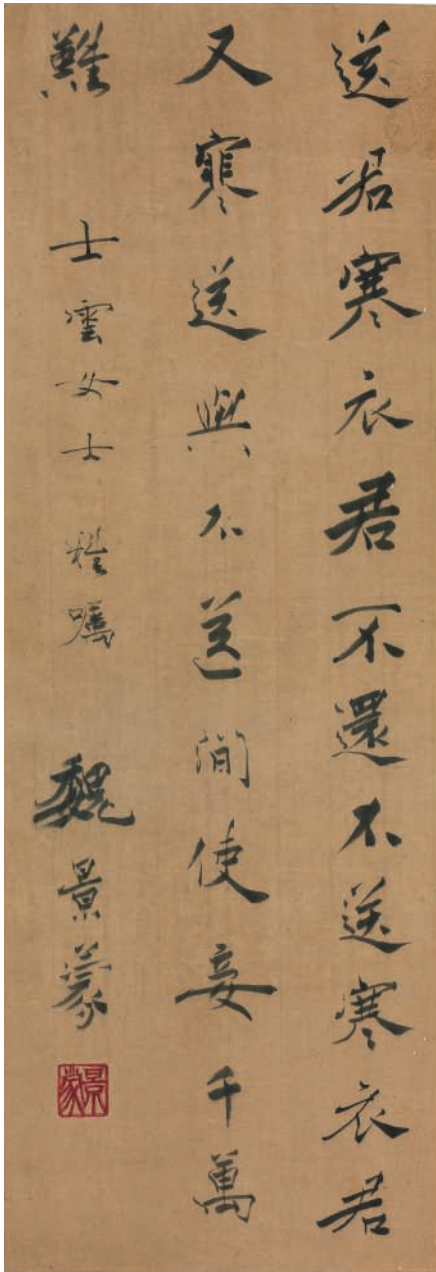 送君寒衣君不還不送寒衣君
又寒送與不送間使妾千萬
難 士雲女士 雅囑 魏景蒙
景蒙